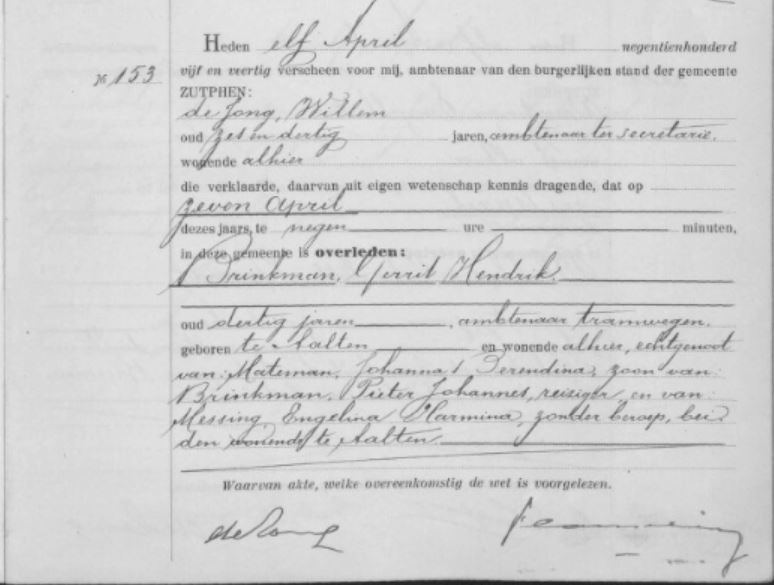 Heden elf April negentienhonderd
№ 153 vijf en veertig verscheen voor mij, ambtenaar van den burgerlijken stand der gemeente
ZUTPHEN:
de Jong, Willem
oud zes en dertig jaren, ambtenaar ter secretarie.
wonende alhier
die verklaarde, daarvan uit eigen wetenschap kennis dragende, dat op
zeven April
dezes jaars, te negen ure minuten,
in deze gemeente is overleden:
Brinkman, Gerrit Hendrik.
oud dertig jaren, ambtenaar tramwegen.
geboren te Aalten en wonende alhier, echtgenoot
van: Mateman, Johanna Berendina, zoon van:
Brinkman, Pieter Johannes, reiziger en van:
Messing, Engelina Harmina, zonder beroep, bei-
den wonende te Aalten.
Waarvan akte, welke overeenkomstig de wet is voorgelezen.
de Jong